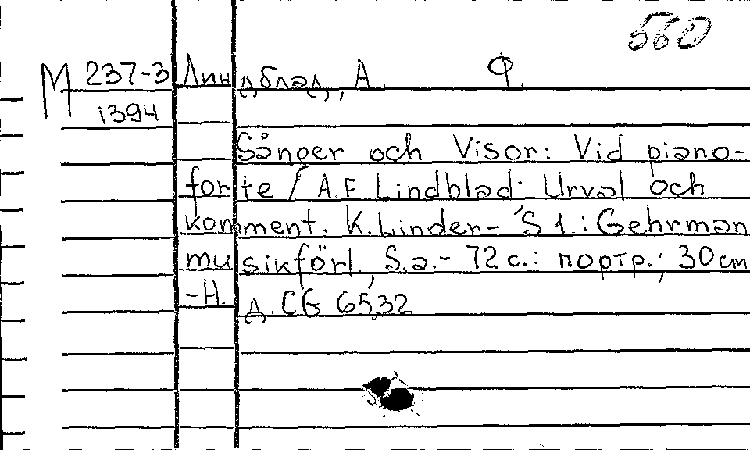 560
М 237-3 Линдблад, А. Ф.
1394
Sånger och Visor: Vid piano-
forte / A.F. Lindblad. Urval och
komment. K. Linder. - S. l.: Gehrman
musikförl., S.a. - 72 с.: портр.; 30 см
- Н. д. CG 6532